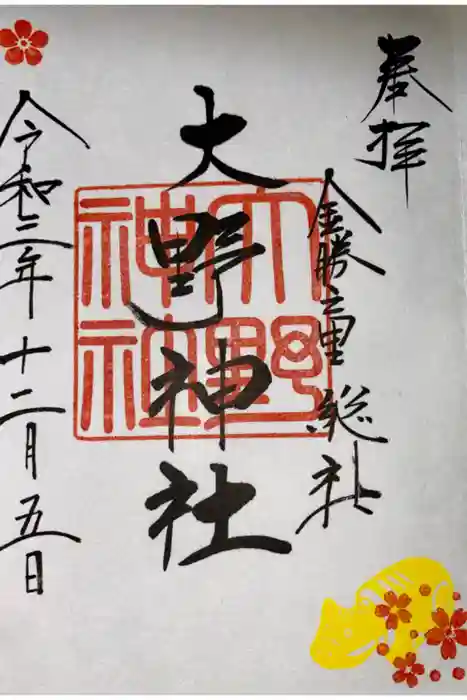 奉拝
金勝之里 総社
大野神社
大野神社
令和三年十二月五日